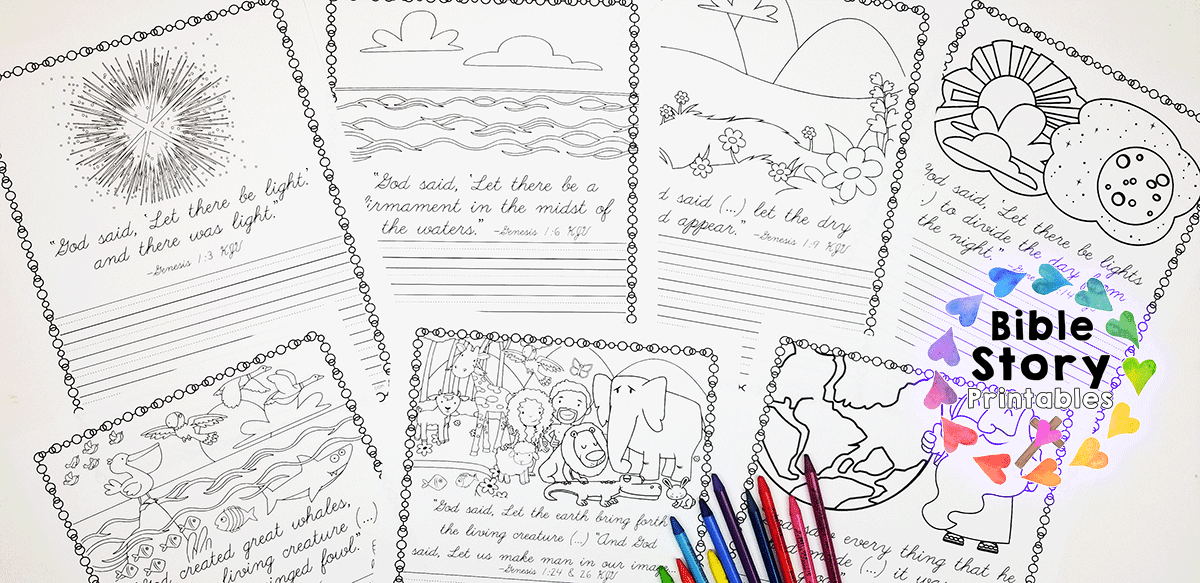 "God said, 'Let there be light',
and there was light."
-Genesis 1:3 KJV
"God said, 'Let there be a
firmament in the midst of
the waters." -Genesis 1:6 KJV
d said (...) let the dry
d appear." -Genesis 1:9 KJV
God said, 'Let there be lights
) to divide the day from
the night."
Bible
Story
Printables
God created great whales,
living creature (...)
winged fowl."
"God said, Let the earth bring forth
the living creature (...) "And God
said, Let us make man in our image
-Genesis 1:24 & 26 KJV
saw every thing that he
made (...) it was
good"